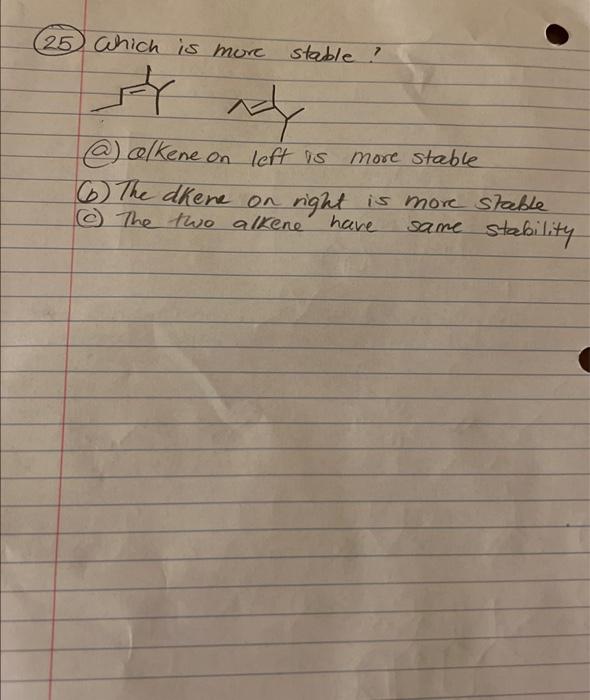 25 Which is more stable?
(a) alkene on left is more stable
(b) The alkene on right is more stable
(c) The two alkene have same stability